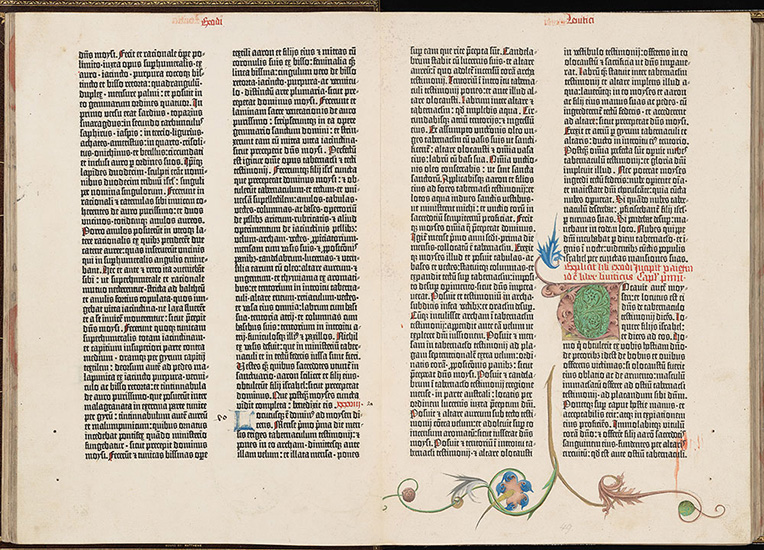 Exodi
dñs moysi. Fecit et racionale ope po-
limito iuxta opus suphumeralis ex
auro · iacincto · purpura coccoq; bis-
tincto et bisso retorta: quadrangulū
duplex · mensure palmi: et posuit in
eo gemmarum ordines quatuor. In
primo versu erat sardius · topazius
smaragdus: in secundo carbunculus
saphirus · iaspis: in tercio · ligurius ·
achates · ametistus: in quarto · crisoli-
tus · onichinus · et berillus: circumdati
et inclusi auro p ordines suos. Ipiq;
lapides duodecim: sculpti erāt nomi-
nibus duodecim tribuū isrl': singuli
per nomina singulorum. Fecerunt in
racionali et catenulas sibi inuicem co-
herentes de auro purissimo: et duos
uncinos · totidemq; anulos aureos.
Porro anulos posuerūt in utroq; la-
tere racionalis
catene auree: quas inseruerūt uncinis
qui in suphumeralis angulis emine-
bant.
sibi: ut superhumerale et racionale
mutuo necterentur · stricta ad baltheū
et anulis forcius copulata · quos iun-
gebat vitta iacinctina: ne laxa fluerēt
et a se inuicē mouerentur: sicut precepit
dñs moysi. Fecerunt quoq; tunicam
superhumeralis totam iacinctinam ·
et capitium in superiori parte contra
medium · oramq; per gyrum capitij
textilem: deorsum autē ad pedes ma-
lapunica ex iacincto purpura · vermi-
culo ac bisso retorta: et tintinnabula
de auro purissimo · que posuerūt inter
malagranata in extrema parte tunice
per gyrū: tintinnabulum autē aureū
et malumpunicum: quibus ornatus
incedebat pontifex quādo ministerio
fungebatur · sicut preceperat dominus
moysi. Fecerūt et tunicas bissinas ope
textili aaron et filijs eius: et mitras cū
coronulis suis ex bisso: feminalia q̄;
linea bissina: cingulum vero de bisso
retorta · iacincto · purpura · ac vermicu-
lo · distinctū arte plumaria · sicut pre-
ceperat dominus moysi. Fecerunt et
laminam sacre veneracionis de auro
purissimo: scripseruntq; in ea opere
gemmario sanctum domini: et strin-
xerunt eam cū mitra vitta iacinctina:
sicut preceperat dñs moysi. Perfectū
est igitur omne opus tabernaculi et tecti
testimonij. Feceruntq; filij isrl' cuncta
que preceperat dominus moysi: et ob-
tulerūt tabernaculum et tectum et uni-
versam suppellectilem: anulos · tabulas ·
vectes · columnas · ac bases · opertoriū
de pellibz arietum rubricatis · et aliud
operimentum de iacinctinis pellibz:
velum · archam · vectes · propiciatorium ·
mensam cum vasis suis · et propositiōis
panibz: candelabrum · lucernas · et uten-
silia earum cū oleo: altare aureum · et
unguentum · et thymiama ex aroma-
tibus: et tentorium in introitu taberna-
culi · altare eneum · retiaculum · vectes ·
et vasa eius omnia: labrum cum basi
sua: tentoria atrij · et columnas cum
basibus suis: tentorium in introitu a-
trij · funiculosq; illiꝰ et paxillos. Nichil
ex vasis defuit: que in ministeriū taber-
naculi et in tectū federis iussa sunt fieri.
Vestes q̄; quibus sacerdotes utunt̄ in
sanctuario · aaron scilicet et filij eius ·
obtulerūt filij israhel: sicut preceperat
dominus. Que postq̄; moyses cuncta
vidit completa: benedixit eis. xxxviiii
Locutusq; ē dominꝰ ad moysen di-
cens. Mense pmo prima die men-
sis eriges tabernaculum testimonij: et
pones in eo archam · dimittesq; ante
illam velum: et illata mensa · pones
Leuitici
sup eam que rite precepta sūt. Candela-
brum stabit cū lucernis suis · et altare
aureū: quo adoletur incensū corā archa
testimonij. Tentoriū in introitu taberna-
culi testimonij pones: et ante illud al-
tare olocausti · labrum inter altare et
tabernaculum: qd implebis aqua. Cir-
cundabisq; atriū tentorijs · et ingressū
eius. Et assumpto unctiōnis oleo un-
ges tabernaculum cū vasis suis ut sancti-
ficent: altare olocausti et omnia vasa
eius: labrū cū basi sua. Omnia unctio-
nis oleo consecrabis: ut sint sancta
sanctorū. Applicabisq; aaron et filios
eius ad fores tabernaculi testimonij: et
lotos aqua indues sanctis vestibus ·
ut ministrent michi: et unctio eorū in
sacerdotiū sempiternū proficiat. Fecit-
q; moyses omnia que preceperat dominus.
Igit̄ mense primo anni secūdi · prima die
mensis · collocatū ē tabernaculum. Erexit-
q; moyses illud et posuit tabulas ac
bases et vectes: statuitq; columnas · et ex-
pandit tectū sup tabernaculum · impo-
sito desuper opimento: sicut dñs impera-
rat. Posuit et testimoniū in archa ·
subditis infra vectibz: et oraculū desup.
Cūq; intulisset archam ī tabernaculum
testimonij: appendit ante eā velum ut
expleret dñi iussionem. Posuit et men-
sam in tabernaculo testimonij ad pla-
gam septentrionalem extra velum: ordi-
natis corā · ppositiōis panibz: sicut
preceperat dñs moysi. Posuit et candela-
brum ī tabernaculo testimonij e regione
mense · in parte australi: locatis per
ordinem lucernis iuxta preceptum dñi.
Posuit et altare aureum sub tecto testi-
monij cōtra velum: et adoleuit sup eo
incensum aromatū: sicut iusserat dñs
moysi. Posuit et tentoriū ī introitu ta-
bernaculi testimonij · et altare olocausti
in vestibulo testimonij: offerens in eo
olocaustū et sacrificia ut dñs impera-
rat. Labrū q̄; statuit inter tabernaculum
testimonij et altare · implens illud a-
qua: laueruntq; in eo moyses et aaron ·
ac filij eius manus suas ac pedes · cū
ingrederent̄ tectū federis · et accederent
ad altare: sicut preceperat dñs moysi.
Erexit et atriū p gyrum tabernaculi et
altaris: ducto in introitu eiꝰ tentorio.
Postq̄; omnia perfecta sūt · opuit nubes
tabernaculū testimonij: et gloria dñi
impleuit illud. Nec poterat moyses
ingredi tectū federis: nube operiente oīa ·
et maiestate dñi choruscāte: quia cūcta
nubes operuerat. Si quādo nubes taber-
naculū deserebat: pficiscebant̄ filij isrl'
p turmas suas. Si pendebat desup: ma-
nebant in eodem loco. Nubes quippe
dñi incubabat p diem tabernaculo · et i-
gnis ī nocte: videntibus cūctis populis
israhel per cunctas mansiones suas.
Explicit lib' exodi Incipit
Leuiticus Cap. primū
Vocauit autē moy-
sen: et locutus est ei
dñs de tabernaculo
testimonij dicēs. Lo-
quere filijs israhel:
et dices ad eos. Ho-
mo q̄ obtulerit ex vobis hostiam dño
de pecoribz · idest de bobus et ouibus
offerens victimas: si olocaustū fuerit
eius oblatio ac de armento: masculū
immaculatū offeret ad ostiū tabernaculi
testimonij · ad placandum sibi dñm.
Ponetq; sup caput hostie manus · et
acceptabilis erit: atq; in expiationem
eius proficiēs. Immolabitq; vitulū
corā dño: et offerēt filij aarō sacerdotes
sanguinem eius · fundentes per altaris
circuitū: qd est ante ostiū tabernaculi.